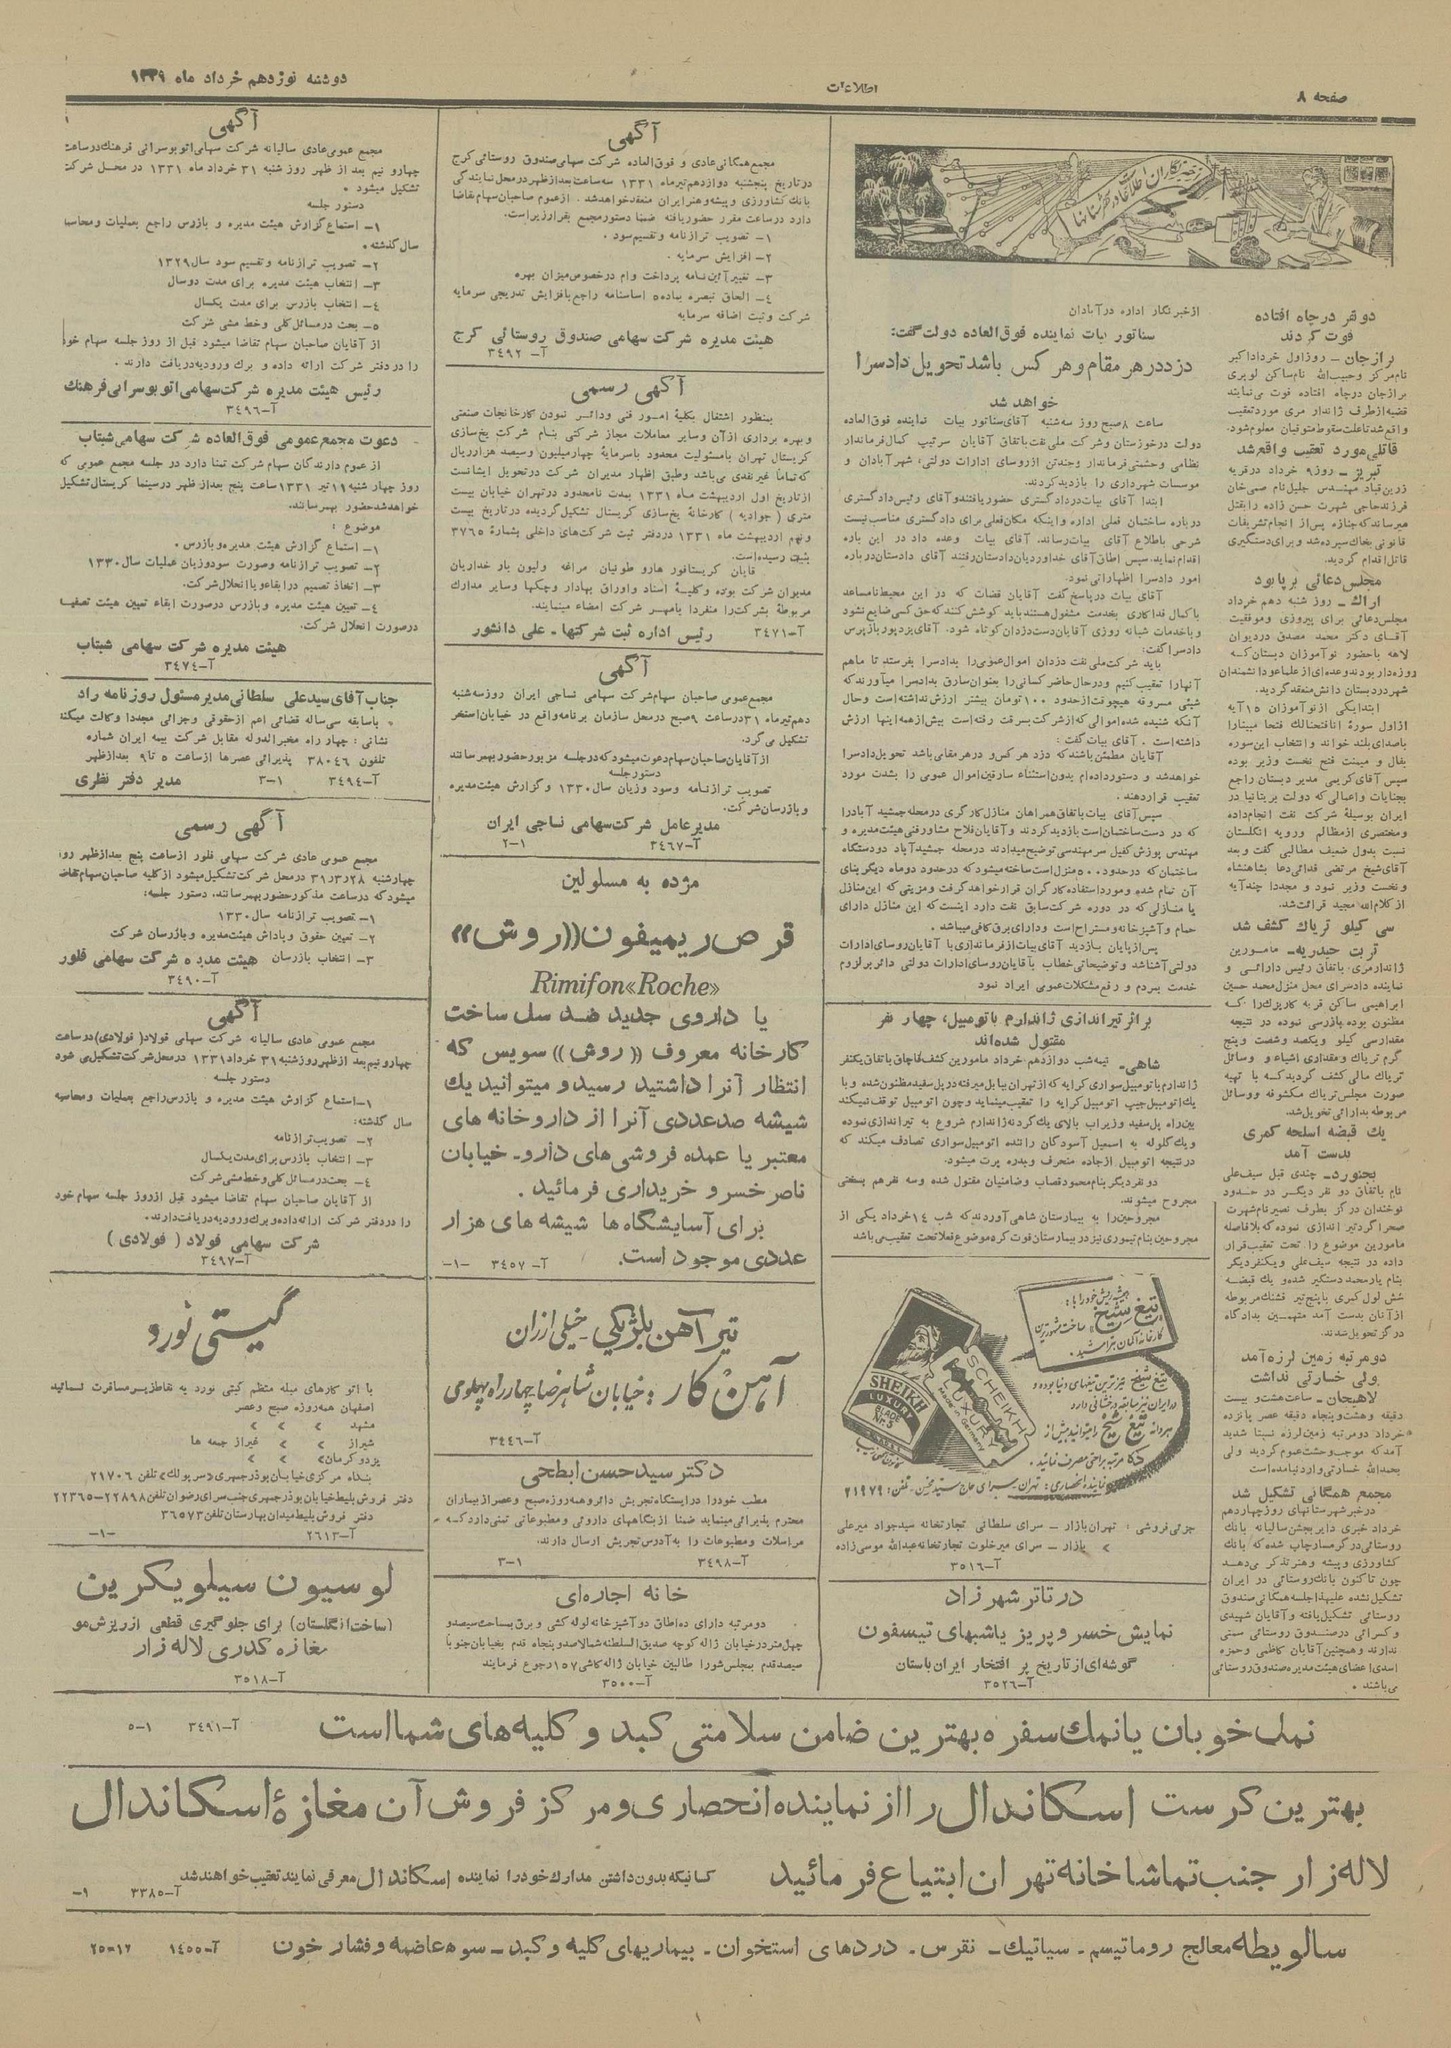 صفحه ۸
اطلاعات
دوشنبه نوزدهم خرداد ماه ۱۳۳۹
دو نفر درچاه افتاده
فوت کردند
برازجان – روزاول خرداد اکبر
نام مرکز وحبیب‌الله نام ساکن لویری
برازجان درچاه افتاده فوت می‌نمایند
قضیه ازطرف ژاندارمری مورد تعقیب
واقع شد تاعلت سقوط متوفیان معلوم شود.
قاتلی مورد تعقیب واقع شد
تبریز – روز۹ خرداد درقریه
زرین قباد مهندس جلیل نام صمی خان
فرزند حاجی شهرت حسن زاده را بقتل
میرساند که جنازه پس از انجام تشریفات
قانونی بخاک سپرده شد و برای دستگیری
قاتل اقدام گردید.
مجلس دعائی برپا بود
اراک – روز شنبه دهم خرداد
مجلس دعائی برای پیروزی و موفقیت
آقای دکتر محمد مصدق در دیوان
لاهه باحضور نوآموزان دبستان که
روزه دار بودند وعده‌ای ازعلما و دانشمندان
شهر در دبستان دانش منعقد گردید.
ابتدا یکی از نوآموزان ۱۵ آیه
از اول سوره انافتحنالک فتحا مبینا را
باصدای بلند خواند و انتخاب این سوره
بفال و میمنت فتح نخست وزیر بوده
سپس آقای کریمی مدیر دبستان راجع
بجنایات واعمالی که دولت بریتانیا در
ایران بوسیلهٔ شرکت نفت انجام داده
و مختصری ازمظالم ورویه انگلستان
نسبت بدول ضعیف مطالبی گفت و بعد
آقای شیخ مرتضی فدائی دعا بشاهنشاه
و نخست وزیر نمود و مجددا چند آیه
از کلام‌الله مجید قرائت شد.
سی کیلو تریاک کشف شد
تربت حیدریه – مامورین
ژاندارمری باتفاق رئیس دارائی و
نماینده دادسرای محل منزل محمد حسین
ابراهیمی ساکن قریه کاریزک را که
مظنون بوده بازرسی نموده در نتیجه
مقدار سی کیلو ویکصد وشصت وپنج
گرم تریاک و مقداری اشیاء و وسائل
تریاک مالی کشف گردید که با تهیه
صورت مجلس تریاک مکشوفه و وسائل
مربوطه بدارائی تحویل شد.
یک قبضه اسلحه کمری
بدست آمد
بجنورد – چندی قبل سیف‌علی
نام باتفاق دو نفر دیگر در حدود
نوخندان درگز بطرف نصیر نام شهرت
صحراگرد تیراندازی نموده که بلافاصله
مامورین موضوع را تحت تعقیب قرار
داده در نتیجه سیف‌علی و یکنفر دیگر
بنام یارمحمد دستگیر شده و یک قبضه
شش لول کمری با پنج تیر فشنگ مربوطه
از آنان بدست آمد متهمین بدادگاه
درگز تحویل شدند.
دو مرتبه زمین لرزه آمد
ولی خسارتی نداشت
لاهیجان – ساعت هشت و بیست
دقیقه وهشت و پنجاه دقیقه عصر پانزده
خرداد دو مرتبه زمین لرزه نسبتا شدید
آمد که موجب وحشت عموم گردید ولی
بحمدالله خسارتی وارد نیامده است
مجمع همگانی تشکیل شد
درخبر شهرستانهای روزچهاردهم
خرداد خبری دایر بجشن سالیانه بانک
روستائی در گرمسار چاپ شده که بانک
کشاورزی و پیشه و هنر تذکر می‌دهد
چون تاکنون بانک روستائی در ایران
تشکیل نشده علیهذا جلسه همگانی صندوق
روستائی تشکیل یافته و آقایان شهیدی
و کسرائی در صندوق روستائی سمتی
ندارند و همچنین آقایان کاظمی و حمزه
اسدی اعضای هیئت مدیره صندوق روستائی
می‌باشند.
ازخبرنگار اداره درآبادان
سناتور بیات نماینده فوق‌العاده دولت گفت:
دزد درهر مقام و هر کس باشد تحویل دادسرا
خواهد شد
ساعت ۸صبح روز سه‌شنبه آقای سناتور بیات نماینده فوق‌العاده
دولت درخوزستان وشرکت ملی نفت باتفاق آقایان سرتیپ کمال فرماندار
نظامی وحشمتی فرماندار وچندتن ازروسای ادارات دولتی، شهر آبادان و
موسسات شهرداری را بازدید کردند.
ابتدا آقای بیات دردادگستری حضور یافتند و آقای رئیس دادگستری
درباره ساختمان فعلی اداره و اینکه مکان فعلی برای دادگستری مناسب نیست
شرحی باطلاع آقای بیات رساند. آقای بیات وعده داد در این باره
اقدام نماید. سپس اطاق آقای خداوردیان دادستان رفتند آقای دادستان درباره
امور دادسرا اظهاراتی نمود.
آقای بیات درپاسخ گفت آقایان قضات که در این محیط نامساعد
باکمال فداکاری بخدمت مشغول هستند باید کوشش کنند که حق کسی ضایع نشود
و با خدمات شبانه روزی آقایان دست دزدان کوتاه شود. آقای یزدپور بازپرس
دادسرا گفت:
باید شرکت ملی نفت دزدان اموال عمومی را بدادسرا بفرستد تا ما هم
آنها را تعقیب کنیم و درحال حاضر کسانی را بعنوان سارق بدادسرا میآورند که
شیئی مسروقه هیچوقت ازحدود ۱۰۰ تومان بیشتر ارزش نداشته است و حال
آنکه شنیده شده اموالی که ازشرکت بسرقت رفته است بیش از همه اینها ارزش
داشته است. آقای بیات گفت:
آقایان مطمئن باشند که دزد هرکس و درهر مقامی باشد تحویل دادسرا
خواهد شد و دستور داده‌ام بدون استثناء سارقین اموال عمومی را بشدت مورد
تعقیب قرار دهند.
سپس آقای بیات باتفاق همراهان منازل کارگری درمحله جمشید آباد را
که در دست ساختمان است بازدید کردند و آقایان فلاح مشاور فنی هیئت مدیره و
مهندس پوزش کفیل سرمهندسی توضیح میدادند درمحله جمشیدآباد دو دستگاه
ساختمان که درحدود ۵۰۰ منزل است ساخته میشود که درحدود دوماه دیگر بنای
آن تمام شده و مورد استفاده کارگران قرار خواهد گرفت و مزیتی که این منازل
با منازلی که در دوره شرکت سابق نفت دارد اینست که این منازل دارای
حمام و آشپزخانه و مستراح است و دارای برق کافی میباشد.
پس از پایان بازدید آقای بیات ازفرمانداری با آقایان روسای ادارات
دولتی آشنا شد و توضیحاتی خطاب بآقایان روسای ادارات دولتی دائر بر لزوم
خدمت بمردم و رفع مشکلات عمومی ایراد نمود
براثر تیراندازی ژاندارم باتومبیل، چهار نفر
مقتول شده‌اند
شاهی – نیمه شب دوازدهم خرداد مامورین کشف قاچاق باتفاق یکنفر
ژاندارم با تومبیل سواری کرایه که از تهران ببابل میرفته در پل سفید مظنون شده و با
یک اتومبیل جیپ اتومبیل کرایه را تعقیب مینماید وچون اتومبیل توقف نمیکند
بین راه پل سفید و زیراب بالای یک گردنه ژاندارم شروع به تیراندازی نموده
و یک گلوله به اسمعیل آسودگان راننده اتومبیل سواری تصادف میکند که
درنتیجه اتومبیل ازجاده منحرف و بدره پرت میشود.
دو نفر دیگر بنام محمود قصاب و ضامنیان مقتول شده و سه نفر هم بسختی
مجروح میشوند.
مجروحین را به بیمارستان شاهی آوردند که شب ۱۴ خرداد یکی از
مجروحین بنام تیموری نیز در بیمارستان فوت کرده موضوع فعلا تحت تعقیب می‌باشد
همیشه ریش خود را با:
تیغ شیخ
ساخت مشهورترین
کارخانه آلمان بتراشید.
SHEIKH
LUXURY
BLADE
Nr.5
SCHEIKH
LUXURY
Made in Germany
تیغ شیخ تیزترین تیغهای دنیا بوده و
در ایران نیز سابقه درخشانی دارد
هر دانه تیغ شیخ را میتوانید بیش از
ده مرتبه براحتی مصرف نمائید.
نماینده انحصاری: تهران – سرای حاج سید محسن – تلفن: ۲۱۹۷۹
جزئی‌فروشی: تهران بازار – سرای سلطانی تجارتخانه سیدجواد میرعلی
» بازار – سرای میرخلوت تجارتخانه عبدالله موسی‌زاده
آ–۳۵۱۶
درتاتر شهرزاد
نمایش خسرو پریز یا شبهای تیسفون
گوشه‌ای از تاریخ پر افتخار ایران باستان
آ–۳۵۲۶
آگهی
مجمع همگانی عادی و فوق‌العاده شرکت سهامی صندوق روستائی کرج
درتاریخ پنجشنبه دوازدهم تیرماه ۱۳۳۱ سه ساعت بعدازظهر درمحل نمایندگی
بانک کشاورزی و پیشه و هنر ایران منعقد خواهد شد. ازعموم صاحبان سهام تقاضا
دارد درساعت مقرر حضور یافته ضمنا دستور مجمع بقرار زیر است.
۱– تصویب ترازنامه و تقسیم سود.
۲– افزایش سرمایه.
۳– تغییر آئین‌نامه پرداخت وام درخصوص میزان بهره
۴– الحاق تبصره بماده ۵ اساسنامه راجع بافزایش تدریجی سرمایه
شرکت و ثبت اضافه سرمایه
هیئت مدیره شرکت سهامی صندوق روستائی کرج
آ– ۳۴۹۲
آگهی رسمی
بمنظور اشتغال بکلیهٔ امور فنی و دائر نمودن کارخانجات صنعتی
و بهره برداری ازآن و سایر معاملات مجاز شرکتی بنام شرکت یخ‌سازی
کریستال تهران بامسئولیت محدود باسرمایهٔ چهارمیلیون و سیصد هزار ریال
که تماماً غیر نقدی می‌باشد وطبق اظهار مدیران شرکت درتحویل ایشانست
ازتاریخ اول اردیبهشت ماه ۱۳۳۱ بمدت نامحدود درتهران خیابان بیست
متری (جوادیه) کارخانهٔ یخ‌سازی کریستال تشکیل گردیده درتاریخ بیست
ونهم اردیبهشت ماه ۱۳۳۱ دردفتر ثبت شرکت‌های داخلی بشمارهٔ ۳۷۶۵
بثبت رسیده است.
آقایان کریستافور هارو طونیان مراغه ولیون یار خداریان
مدیران شرکت بوده و کلیهٔ اسناد و اوراق بهادار وچکها وسایر مدارک
مربوطهٔ بشرکت را منفرداً بامهر شرکت امضاء مینمایند.
آ–۳۴۷۱ رئیس اداره ثبت شرکتها – علی دانشور
آگهی
مجمع عمومی صاحبان سهام شرکت سهامی نساجی ایران روز سه‌شنبه
دهم تیرماه ۳۱ درساعت ۹صبح درمحل سازمان برنامه واقع درخیابان استخر
تشکیل می‌گردد.
ازآقایان صاحبان سهام دعوت میشود که درجلسه مزبور حضور بهمرسانند
دستور جلسه
تصویب ترازنامه وسود و زیان سال ۱۳۳۰ و گزارش هیئت مدیره
و بازرسان شرکت.
مدیرعامل شرکت سهامی نساجی ایران
آ–۳۴۶۷ ۲–۱
مژده به مسلولین
قرص ریمیفون «روش»
Rimifon «Roche»
یا داروی جدید ضد سل ساخت
کارخانه معروف ((روش)) سویس که
انتظار آنرا داشتید رسید و میتوانید یک
شیشه صدعددی آنرا از داروخانه های
معتبر یا عمده فروشی‌های دارو – خیابان
ناصرخسرو خریداری فرمائید.
برای آسایشگاه‌ها شیشه‌های هزار
عددی موجود است.
آ– ۳۴۵۷ –۱–
تیرآهن بلژیکی – خیلی ارزان
آهن کار: خیابان شاهرضا چهارراه پهلوی
آ–۳۴۴۶
دکتر سید حسن ابطحی
مطب خود را درایستگاه تجریش دائر و همه روزه صبح و عصر از بیماران
محترم پذیرائی مینماید ضمنا ازبنگاههای داروئی و مطبوعاتی تمنی دارد که
مراسلات و مطبوعات را به آدرس تجریش ارسال دارند.
آ–۳۴۹۸ ۳–۱
خانه اجاره‌ای
دومرتبه دارای ده اطاق دو آشپزخانه لوله کشی و برق بمساحت سیصدو
چهل متر درخیابان ژاله کوچه صدیق السلطنه شمالا صدو پنجاه قدم بخیابان جنوباً
سیصد قدم بمجلس شورا طالبین خیابان ژاله کاشی ۱۵۷ رجوع فرمایند
آ–۳۵۰۰
آگهی
مجمع عمومی عادی سالیانه شرکت سهامی اتوبوسرانی فرهنگ درساعت
چهارو نیم بعد از ظهر روز شنبه ۳۱ خرداد ماه ۱۳۳۱ در محل شرکت
تشکیل میشود.
دستور جلسه
۱– استماع گزارش هیئت مدیره و بازرس راجع بعملیات و محاسبه
سال گذشته.
۲– تصویب ترازنامه و تقسیم سود سال ۱۳۲۹
۳– انتخاب هیئت مدیره برای مدت دوسال
۴– انتخاب بازرس برای مدت یکسال
۵– بحث درمسائل کلی وخط مشی شرکت
از آقایان صاحبان سهام تقاضا میشود قبل از روز جلسه سهام خود
را در دفتر شرکت ارائه داده و برگ ورودیه دریافت دارند.
رئیس هیئت مدیره شرکت سهامی اتوبوسرانی فرهنگ
آ–۳۴۹۶
دعوت مجمع عمومی فوق‌العاده شرکت سهامی شبتاب
از عموم دارندگان سهام شرکت تمنا دارد در جلسه مجمع عمومی که
روز چهارشنبه ۱۱ تیر ۱۳۳۱ ساعت پنج بعداز ظهر درسینما کریستال تشکیل
خواهد شد حضور بهمرسانند.
موضوع:
۱– استماع گزارش هیئت مدیره و بازرس.
۲– تصویب ترازنامه وصورت سود و زیان عملیات سال ۱۳۳۰
۳– اتخاذ تصمیم درابقاء و یا انحلال شرکت.
۴– تعیین هیئت مدیره و بازرس درصورت ابقاء تعیین هیئت تصفیه
درصورت انحلال شرکت.
هیئت مدیره شرکت سهامی شبتاب
آ–۳۴۷۴
جناب آقای سید علی سلطانی مدیر مسئول روزنامه راد
باسابقه سی ساله قضائی اعم از حقوقی و جزائی مجددا وکالت میکند
نشانی: چهار راه مخبرالدوله مقابل شرکت بیمه ایران شماره
تلفون ۳۸۰۴۶ پذیرائی عصرها از ساعت ۵ تا ۹ بعد از ظهر
آ–۳۴۹۴ ۳–۱ مدیر دفتر نظری
آگهی رسمی
مجمع عمومی عادی شرکت سهامی فلور از ساعت پنج بعداز ظهر روز
چهارشنبه ۲۸ر۳ر۳۱ درمحل شرکت تشکیل میشود ازکلیه صاحبان سهام تقاضا
میشود که درساعت مذکور حضور بهمرسانند. دستور جلسه:
۱– تصویب ترازنامه سال ۱۳۳۰
۲– تعیین حقوق و پاداش هیئت مدیره و بازرسان شرکت
۳– انتخاب بازرسان هیئت مدیره شرکت سهامی فلور
آ–۳۴۹۰
آگهی
مجمع عمومی عادی سالیانه شرکت سهامی فولاد (فولادی) درساعت
چهارو نیم بعد ازظهر روز شنبه ۳۱ خرداد ۱۳۳۱ درمحل شرکت تشکیل می شود
دستور جلسه
۱–استماع گزارش هیئت مدیره و بازرس راجع بعملیات و محاسبه
سال گذشته:
۲– تصویب ترازنامه
۳– انتخاب بازرس برای مدت یکسال
۴– بحث درمسائل کلی وخط مشی شرکت
از آقایان صاحبان سهام تقاضا میشود قبل ازروز جلسه سهام خود
را دردفتر شرکت ارائه داده و برگ ورودیه دریافت دارند.
شرکت سهامی فولاد (فولادی)
آ–۳۴۹۷
گیتی نورد
با اتوکارهای مبله منظم گیتی نورد به نقاط زیر مسافرت نمائید
اصفهان همه روزه صبح وعصر
مشهد » » »
شیراز » » غیراز جمعه ها
یزدو کرمان » »
بنگاه مرکزی خیابان بوذرجمهری (سرپولک) تلفن ۲۱۷۰۶
دفتر فروش بلیط خیابان بوذرجمهری جنب سرای رضوان تلفن ۲۲۸۹۸–۲۲۳۶۵
دفتر فروش بلیط میدان بهارستان تلفن ۳۶۵۷۳
آ–۲۶۱۳ –۱–
لوسیون سیلویکرین
(ساخت انگلستان) برای جلوگیری قطعی از ریزش مو
مغازه کدری لاله زار
آ–۳۵۱۸
نمک خوبان یا نمک سفره بهترین ضامن سلامتی کبد و کلیه‌های شما است
آ–۳۴۹۱ ۵–۱
بهترین کرست اسکاندال را از نماینده انحصاری و مرکز فروش آن مغازهٔ اسکاندال
لاله‌زار جنب تماشاخانه تهران ابتیاع فرمائید
کسانیکه بدون داشتن مدارک خود را نماینده اسکاندال معرفی نمایند تعقیب خواهند شد
آ–۳۳۸۵ ۱–
سالویطه معالج روماتیسم – سیاتیک – نقرس – دردهای استخوان – بیماریهای کلیه و کبد – سوءهاضمه و فشار خون
آ–۱۴۵۵ ۲۵–۱۶